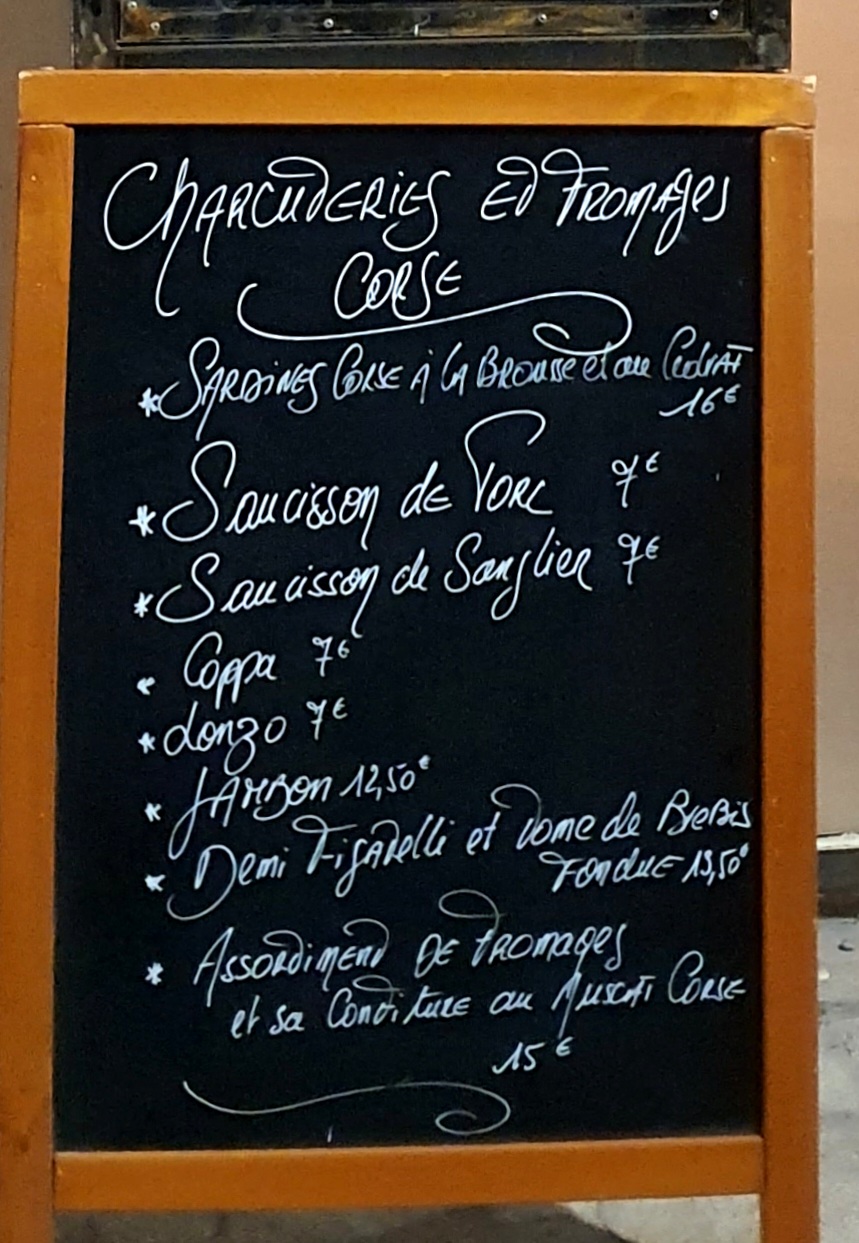 CHARCUTERIES ET FROMAGES
CORSE
* SARDINES CORSE À LA BROUSSE et au Cédrat
16€
* Saucisson de PORC 7€
* Saucisson de Sanglier 7€
* Coppa 7€
* Lonzo 7€
* JAMBON 12,50€
* Demi Figatelli et Tome de BREBIS
FONDUE 13,50€
* ASSORTIMENT DE FROMAGES
et sa Confiture au MUSCAT CORSE
15€